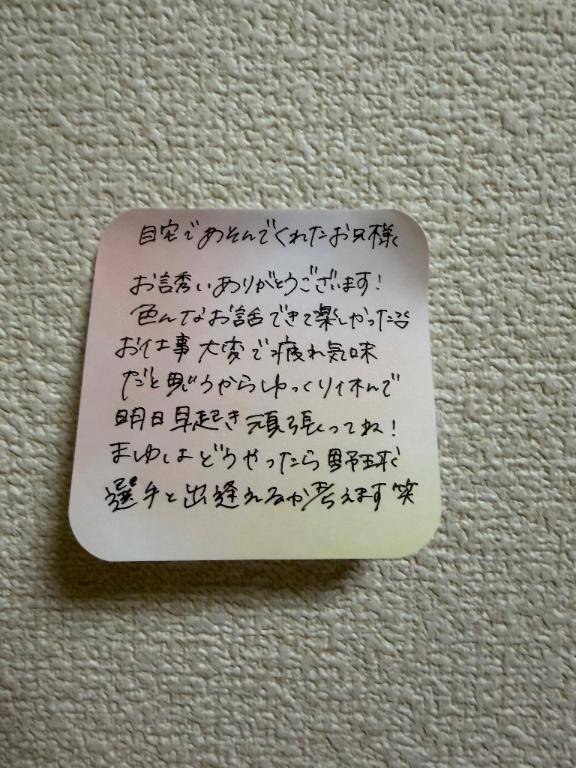 自宅であそんでくれたお兄様へ
お誘いありがとうございます!
色んなお話できて楽しかった
お仕事大変で疲れ気味
だと思うからゆっくり休んで
明日早起き頑張ってね!
まゆはどうやったら野球
選手と出逢えるか考えます笑